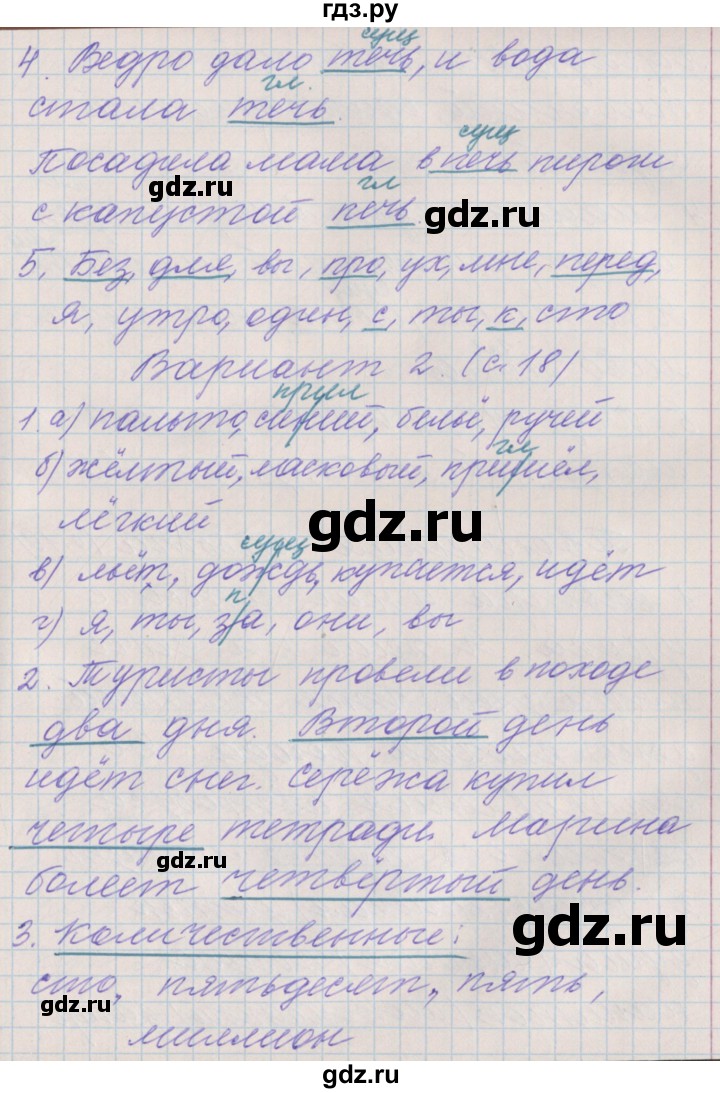 гдз.ру
сущ
4. Ведро дало течь, и вода
гл.
стала течь.
сущ
Посадила мама в печь пирожи
gdz.ru
гл
gdz.ru
с капустой печь.
5. Без, для, вы, про, ух, мне, перед,
я, утро, один, с, ты, к, сто
Вариант 2. (с. 18)
прил
1. а) пальто, синий, бельё, ручей
гл.
б) жёлтый, ласковый, пришёл,
gdz.ru
лёгкий
сущ
в) льёт, дождь, купается, идёт
п
gdz.ru
г) я, ты, за, они, вы
2. Туристы провели в походе
два дня. Второй день
идёт снег. Серёжа купил
четыре тетради. Марина
gdz.ru
болеет четвёртый день.
gdz.ru
3. Количественные:
сто, пятьдесят, пять,
gdz.ru
миллион
gdz.ru